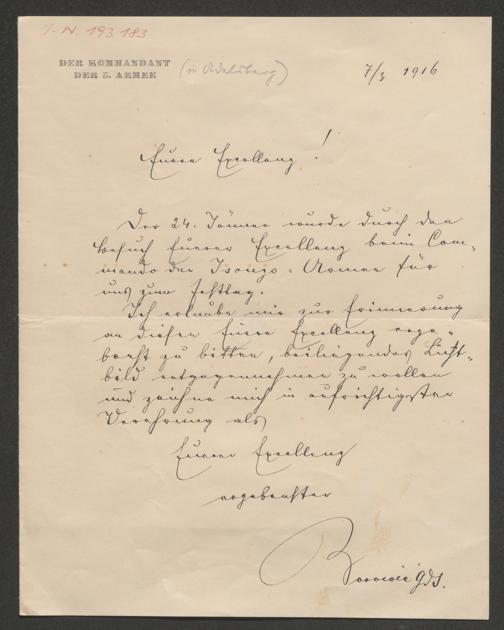 I. N. 193.183
DER KOMMANDANT
DER 5. ARMEE
(in Adelsberg)
7/3 1916
Euere Excellenz!
Der 24. Jänner wurde durch den
Besuch Euerer Excellenz beim Com-
mando der Isonzo-Armee für
uns zum Festtag.
Ich erlaube mir zur Erinnerung
an diesen Euere Excellenz erge-
benst zu bitten, beiliegendes Licht-
bild entgegennehmen zu wollen
und zeichne mich in aufrichtigster
Verehrung als
Euerer Excellenz
ergebenster
Boroević GdI.